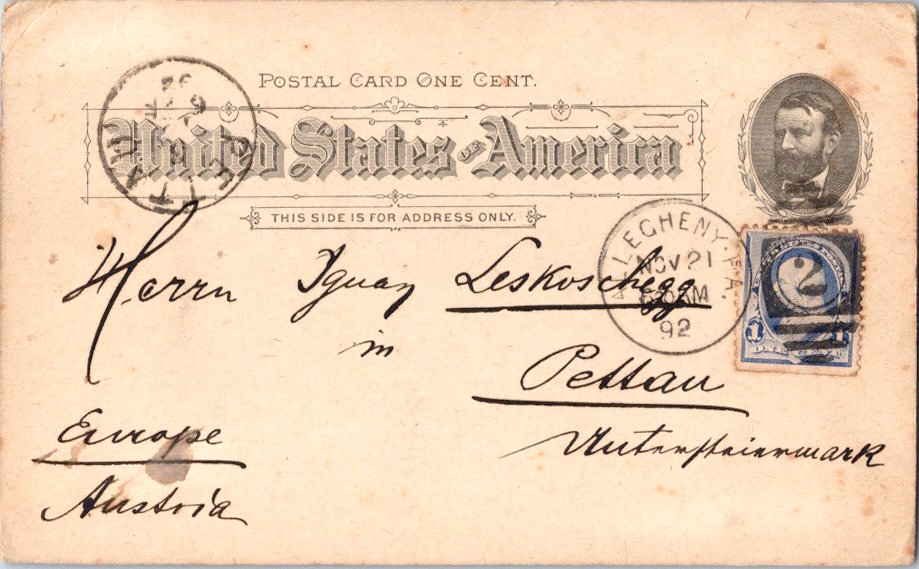 POSTAL CARD ONE CENT.
United States of America
THIS SIDE IS FOR ADDRESS ONLY.
PETTAU
ALLEGHENY, PA.
NOV 21
92
2
1 1
ONE CENT
Herrn Ignaz Leskoschegg
in
Pettau
Untersteiermark
Europe
Austria